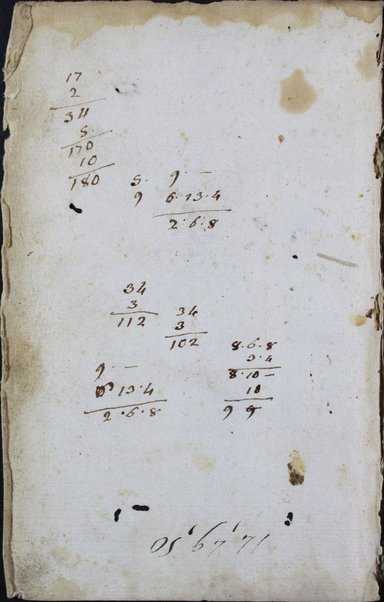 17
2
34
5
170
10
180
5. 9. –
9 6.13.4
2.6.8
34
3
112
34
3
102
8.6.8
3.4
8.10 –
10
9. –
6.13.4
2.6.8